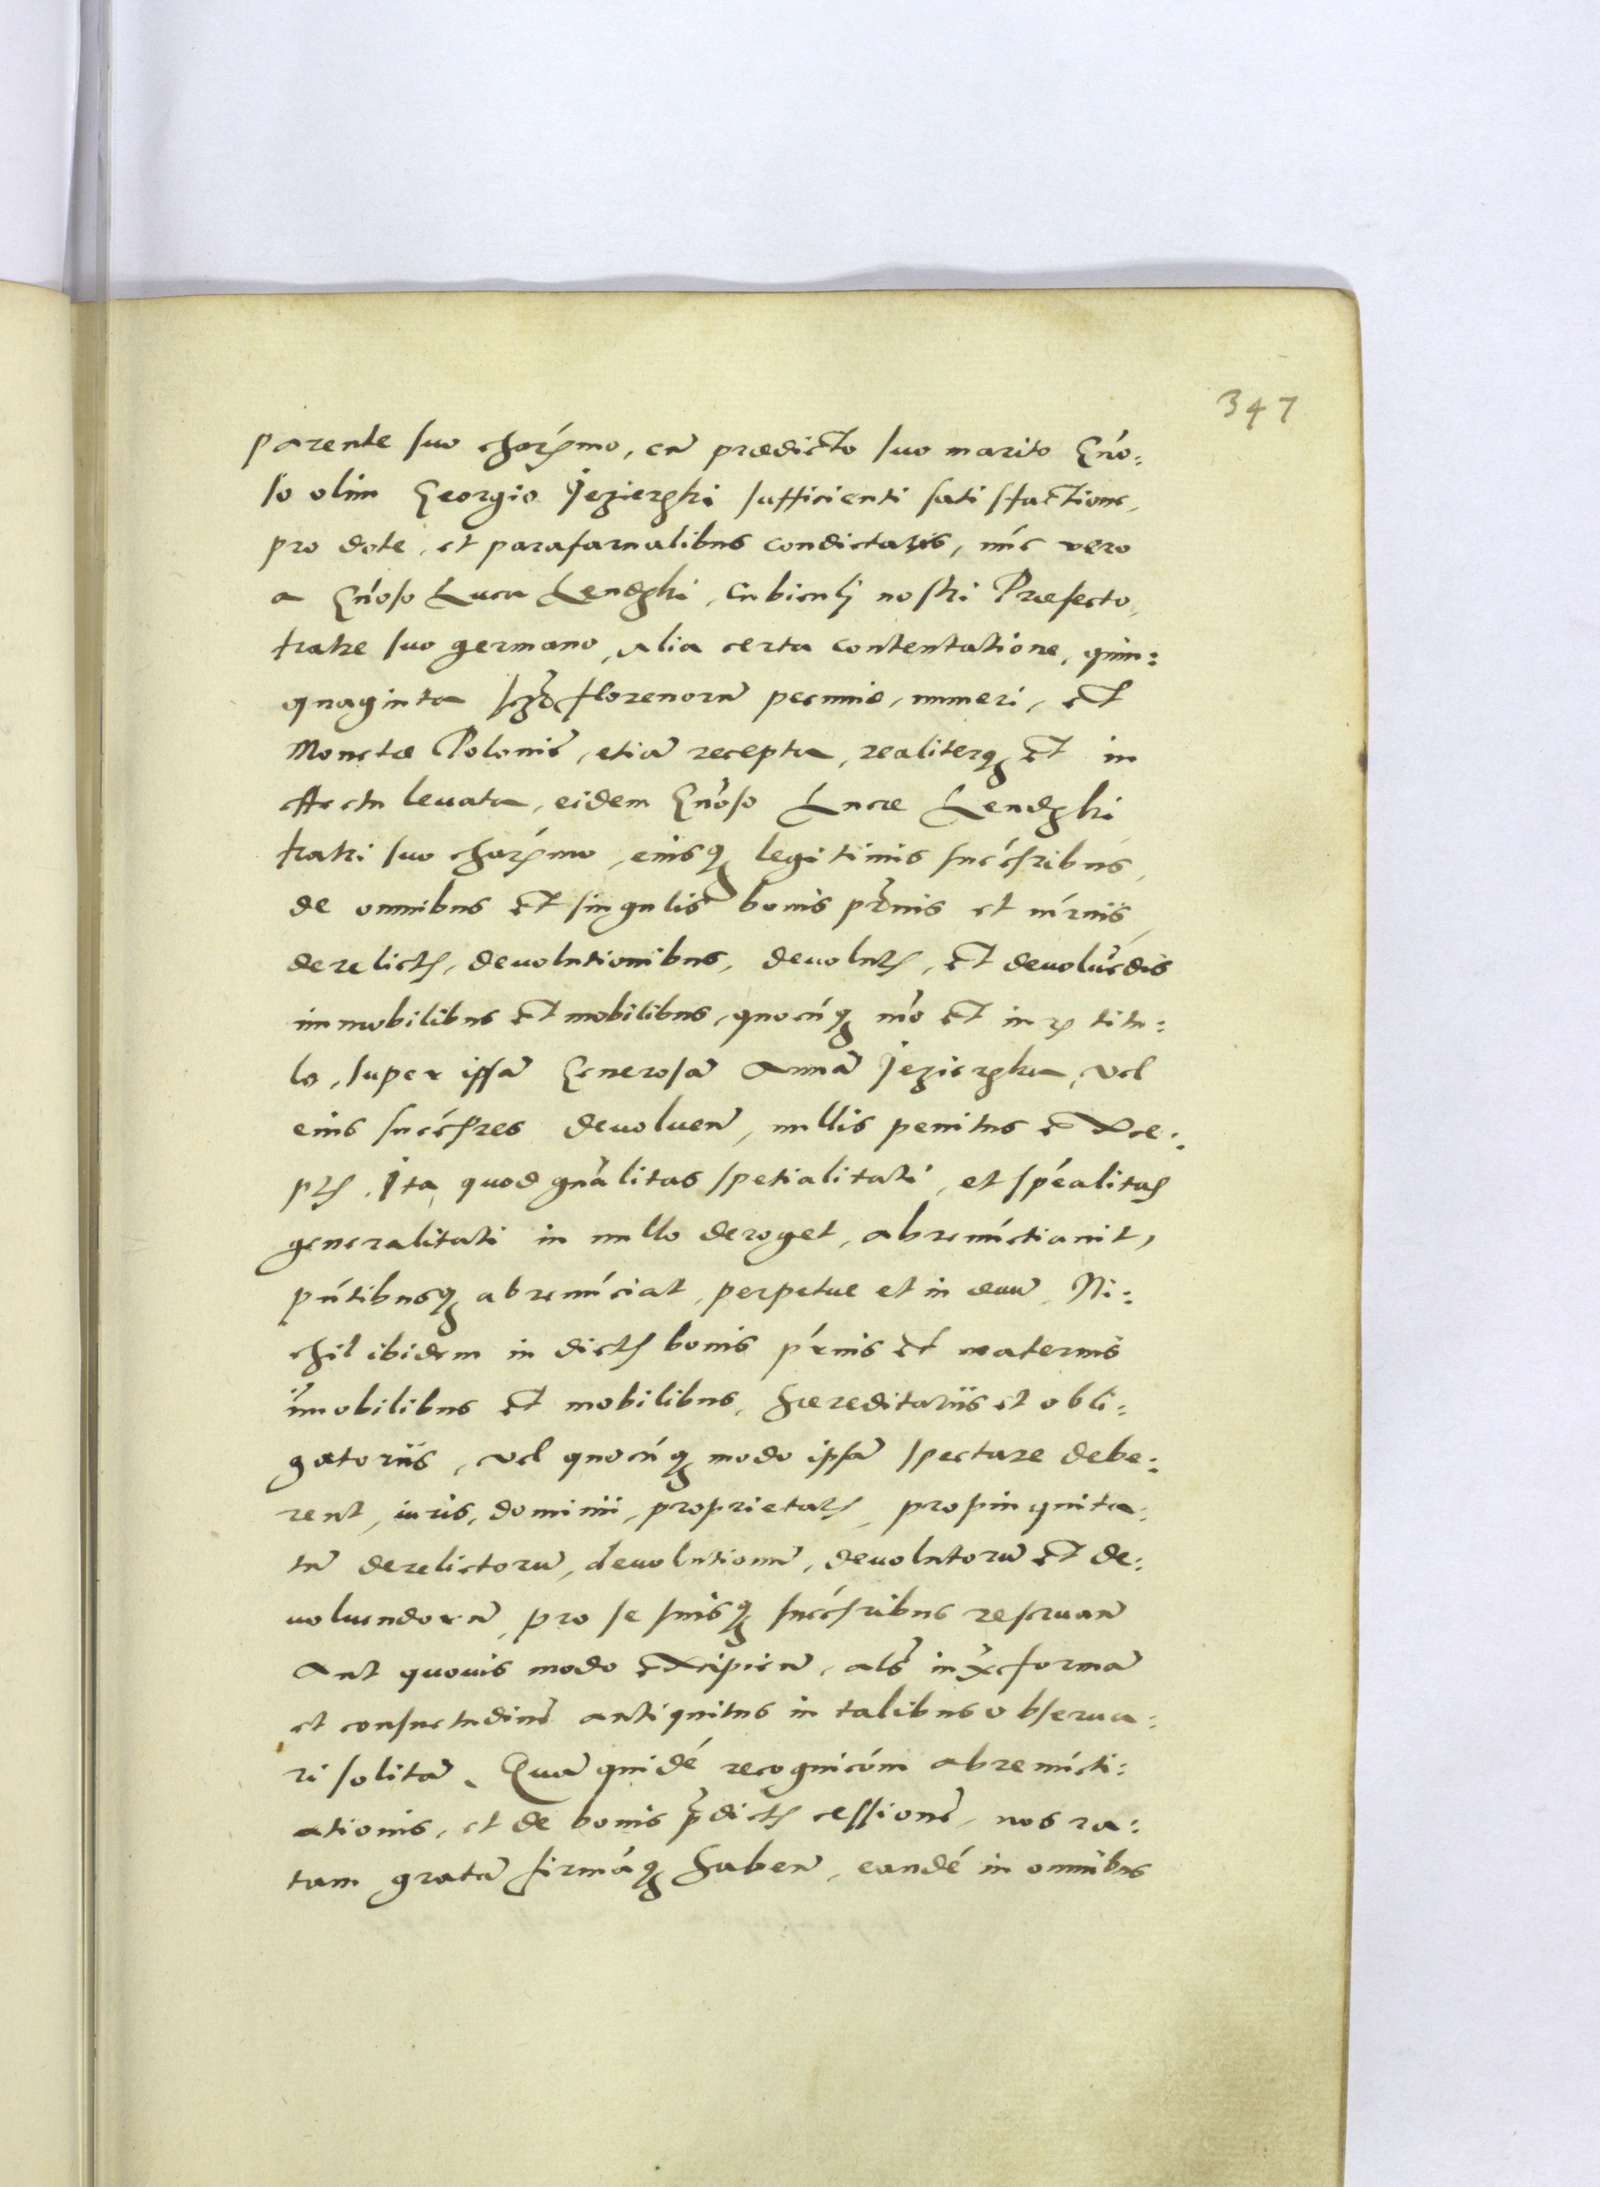 347
parente suo charismo, cū prædicto suo marito Gnó:
so olim Georgio Jezierski sufficienti satisfactione,
pro dote, et parafarnalibus condictatis, núc vero
a Gnóso Luca Lendzki, Cubiculj nostri Præfecto,
fratre suo germano, alia certa contentatione, quin:
quaginta florenorū pecuniæ, numeri, et
Monetæ Poloniē, etiā recepta, realiterq₃ et in
effectu levata, eidem Gnóso Lucæ Lendzki
fratri suo charismo, eiusq₃ legitimis succésribus,
de omnibus et singulis bonis p̄rnis et mr̄nis,
derelictis, devolutionibus, devolutis, et devolvēdis
immobilibus et mobilibus, quocūq₃ mō et titu:
lo, super ipsā Generosā Annā Jezierska, vel
eius succésres devoluen̄, nullis penitus exce:
ptis. Ita quod gnālitas spetialitati, et spéalitas
generalitati in nullo deroget, abrenúctiavit,
pn̄tibusq₃ abrenúciat, perpetue et in ævū. Ni:
chil ibidem in dictis bonis p̄rnis et maternis
īmobilibus et mobilibus, hæreditariis et obli:
gatoriis, vel quocūq₃ modo ipsā spectare debe:
rent, iuris, dominii, proprietatis, propinquita:
tū derelictorū, devolutionū, devolutorū et de:
voluendorū, pro se suisq₃ succésribus reservan̄
Aut quovis modo excipien̄, als̄ formā
et consuetudinē antiquitus in talibus observa:
ri solitā. Quā quidé recognicóni abrenúcti:
ationis, et de bonis p̄dictis cessionē, nos ra:
tam gratā firmáq₃ haben̄, eandé in omnibus